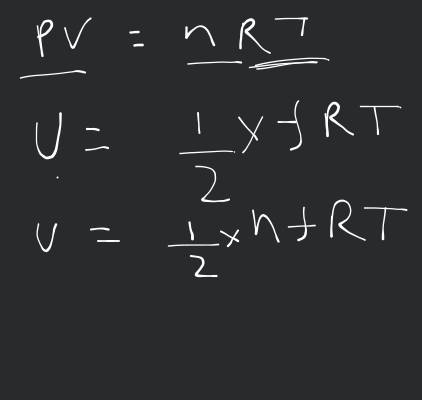 PV = nRT
U = 1/2 x f RT
U = 1/2 x n f RT